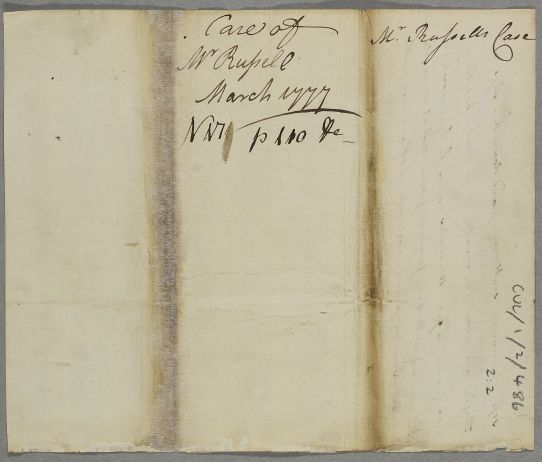 Case of
Mr Russell
March 1777
N VI p 110 &c
Mr. Russells Case
CUL/1/2/486
2:2